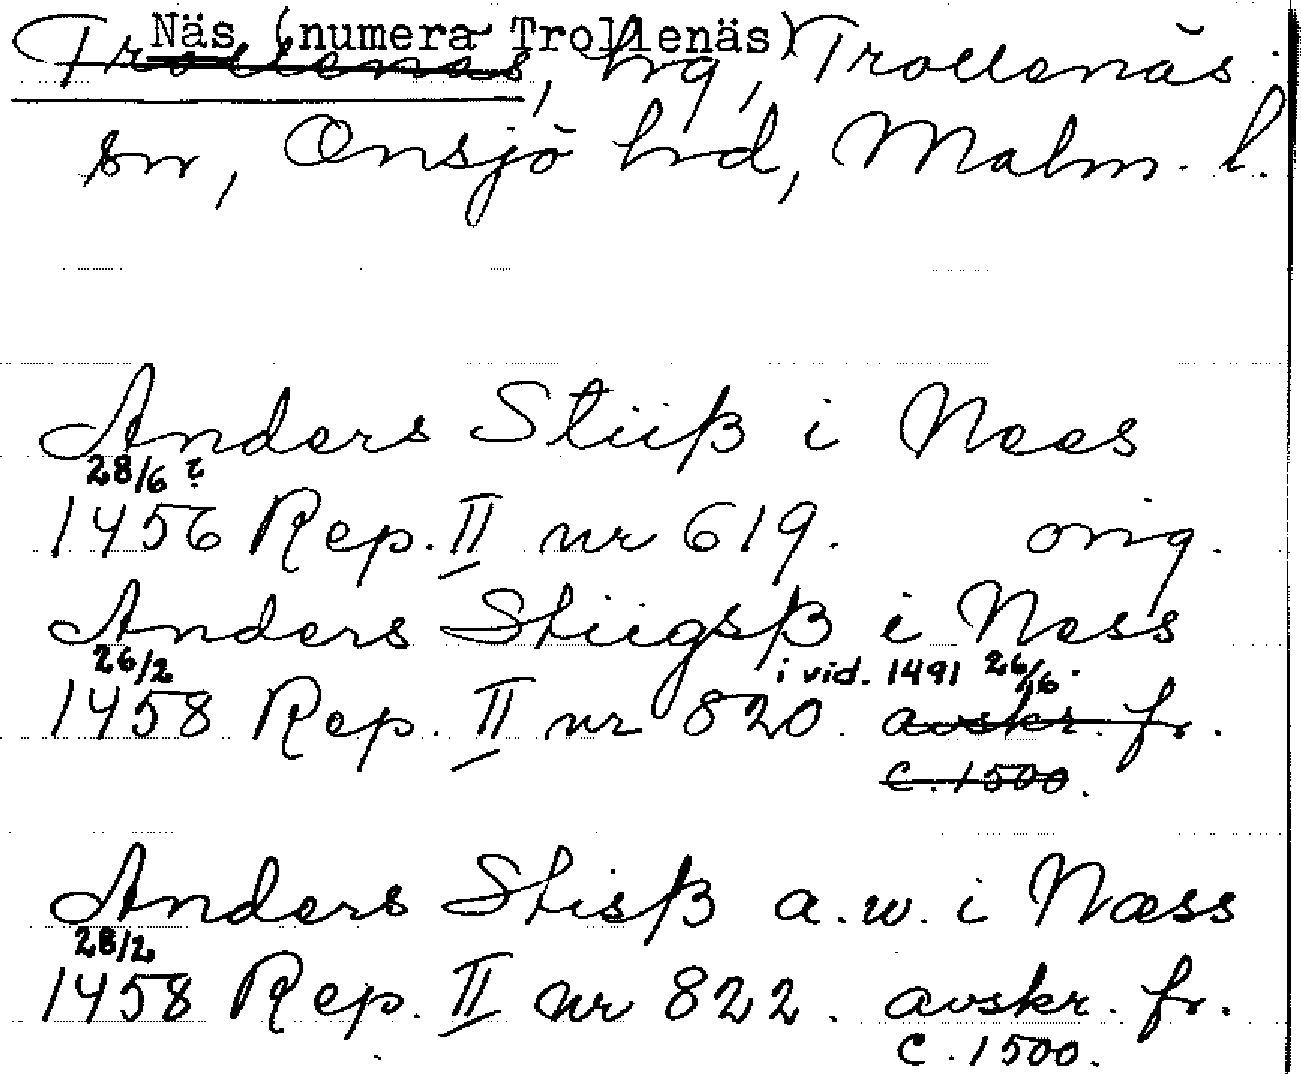 Näs (numera Trollenäs)
Trollenäs, hrg, Trollenäs
sn, Onsjö hrd, Malm. l.
Anders Stiiß i Nees
28/6 ?
1456 Rep. II nr 619. orig.
Anders Stiigsß i Ness
26/2 i vid. 1491 26/6.
1458 Rep. II nr 820. avskr. fr.
c. 1500.
Anders Stisß a.w. i Næss
28/2
1458 Rep. II nr 822. avskr. fr.
c. 1500.